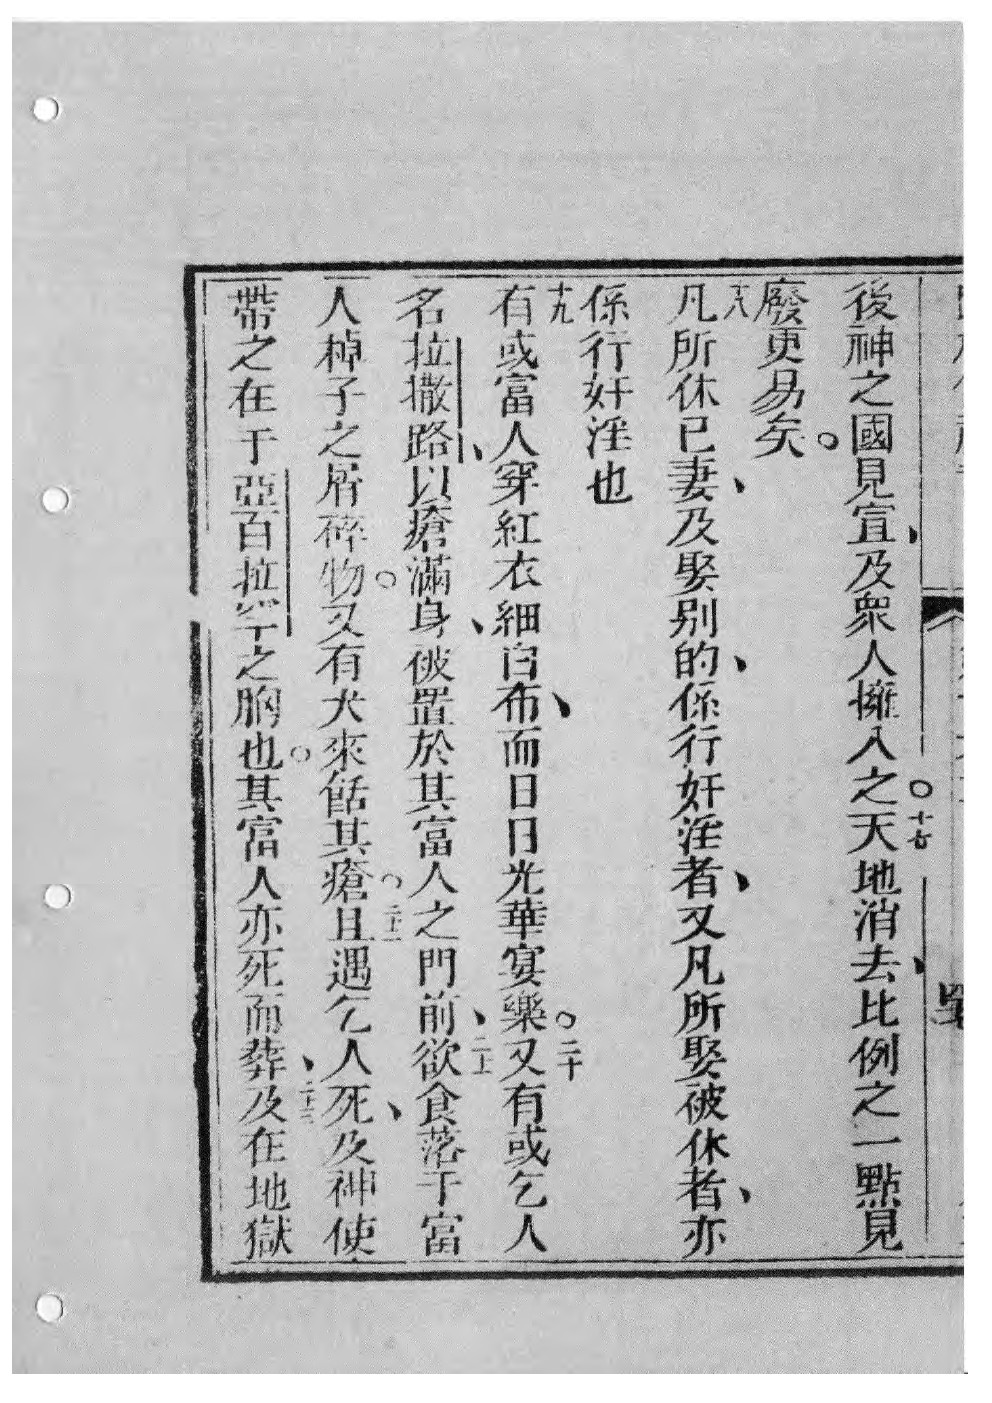 後神之國見宣、及衆人擁入之。十七天地消去、比例之一點見
廢更易矣。
十八凡所休已妻、及娶别的、係行奸淫者、又凡所娶被休者、亦
係行奸淫也
十九有或富人穿紅衣細白布、而日日光華宴樂。二十又有或乞人
名拉撒路、以瘡滿身、被置於其富人之門前、二十一欲食落于富
人棹子之屑碎物。又有犬來餂其瘡。二十二且遇乞人死、及神使
帶之在于亞百拉罕之胸也。其富人亦死而葬、二十三及在地獄